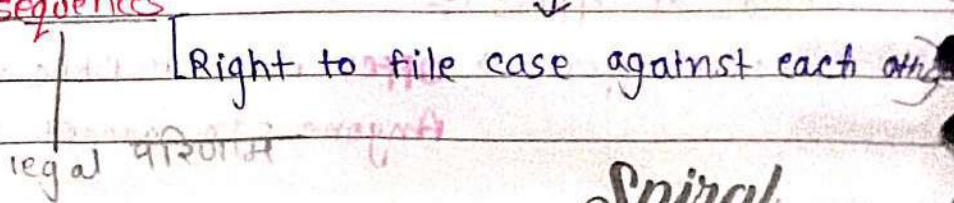 sequences
[Right to file case against each other]
legal परिणाम
Spiral